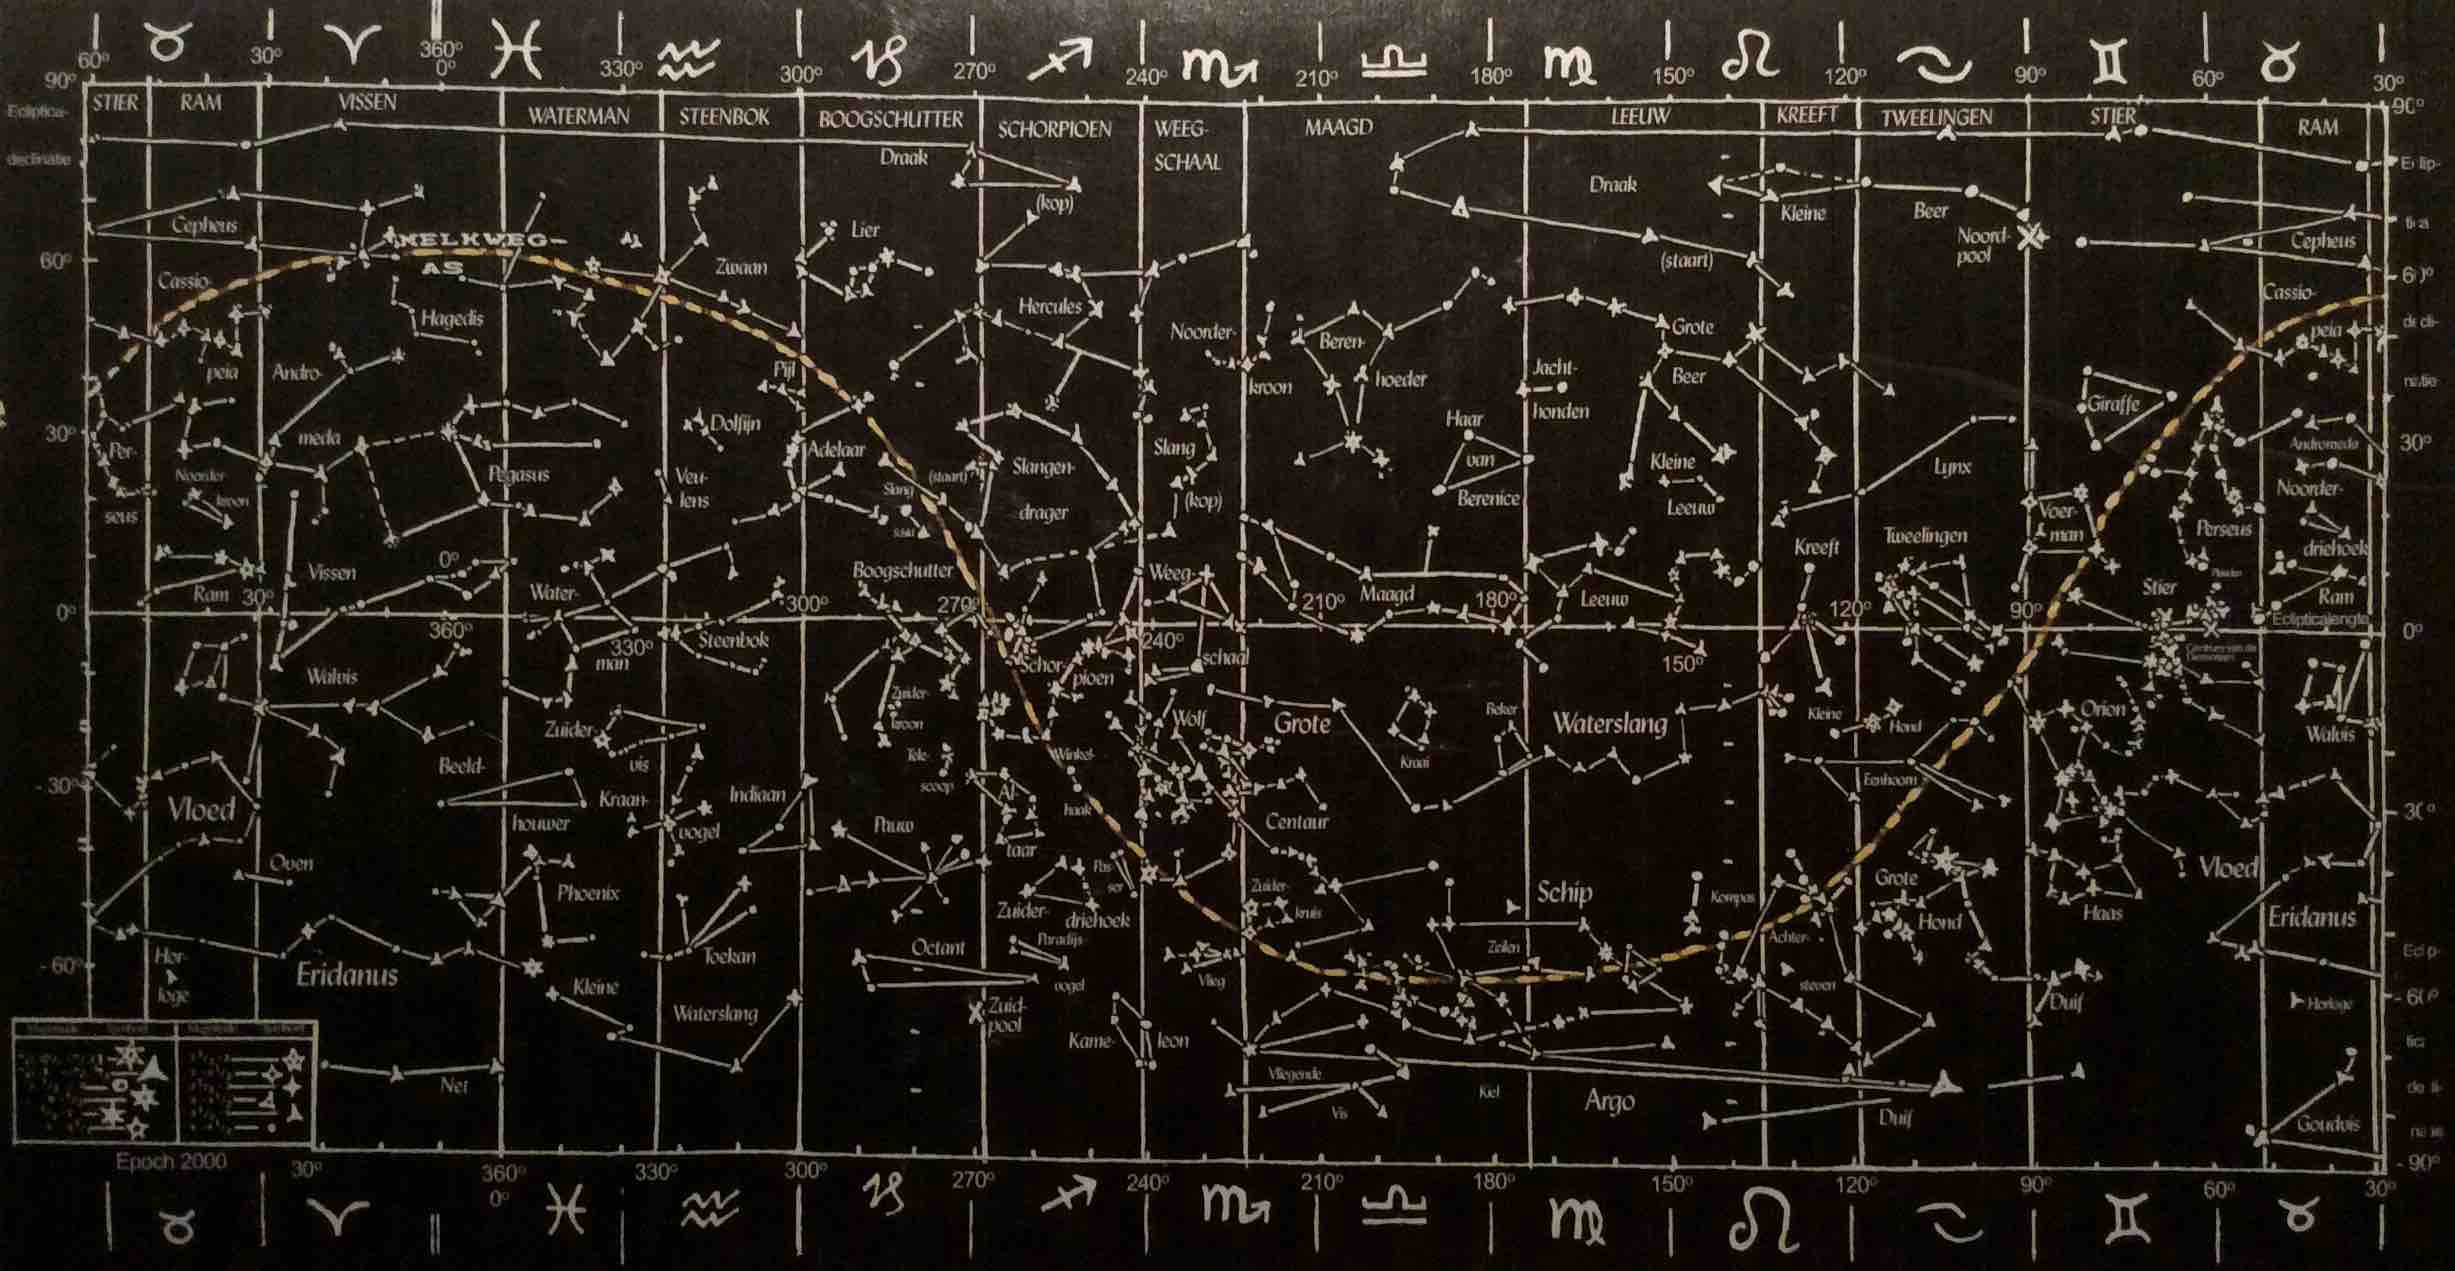 60° 30° 360° 330° 300° 270° 240° 210° 180° 150° 120° 90° 60° 30°
0°
90° 90°
STIER RAM VISSEN WATERMAN STEENBOK BOOGSCHUTTER SCHORPIOEN WEEG- MAAGD LEEUW KREEFT TWEELINGEN STIER RAM
SCHAAL
Ecliptica-
declinatie
Draak
(kop)
Draak
Kleine Beer
Noord-
pool
Cepheus
MELKWEG-
AS
Lier
Zwaan
(staart)
Cepheus
60° 60°
Cassio-
peia
Hagedis
Hercules
Noorder-
kroon
Beren-
hoeder
Grote
Beer
Cassio-
peia
Andro-
meda
Pijl
Jacht-
honden
Giraffe
30° 30°
Per-
seus
Noorder-
kroon
Pegasus
Dolfijn
Veu-
lens
Adelaar
Slang
(staart)
Slangen-
drager
Slang
(kop)
Haar
van
Berenice
Kleine
Leeuw
Lynx
Voer-
man
Perseus
Andromeda
Noorder-
driehoek
Ram 30°
Vissen
0°
Water-
man
Boogschutter
Weeg-
schaal
Maagd
Leeuw
Kreeft
Tweelingen
Stier
Ram
0° 360° 330° 300° 270° 240° 210° 180° 150° 120° 90° 0°
Eclipticalengte
Steenbok
Schor-
pioen
Walvis
Zuider-
vis
Zuider-
kroon
Wolf
Grote Waterslang
Raaf
Beker
Kleine Hond
Orion
Walvis
- 30° 30°
Vloed
Beeld-
houwer
Kraan-
vogel
Indiaan
Tele-
scoop
Al-
taar
Winkel-
haak
Centaur
Eenhoorn
Oven
Phoenix
Pauw
Pas-
ser
Zuider-
driehoek
Zuider-
kruis
Schip
Kompas
Grote
Hond
Haas
Vloed
Eridanus
- 60° - 60°
Hor-
loge
Eridanus
Toekan
Octant
Paradijs-
vogel
Vlieg
Zeilen
Achter-
steven
Duif
Horloge
Kleine
Waterslang
Zuid-
pool
Kame-
leon
Net
Vliegende
Vis
Kiel
Argo
Duif
Goudvis
Epoch 2000
- 90°
30° 360° 330° 300° 270° 240° 210° 180° 150° 120° 90° 60° 30°
0°